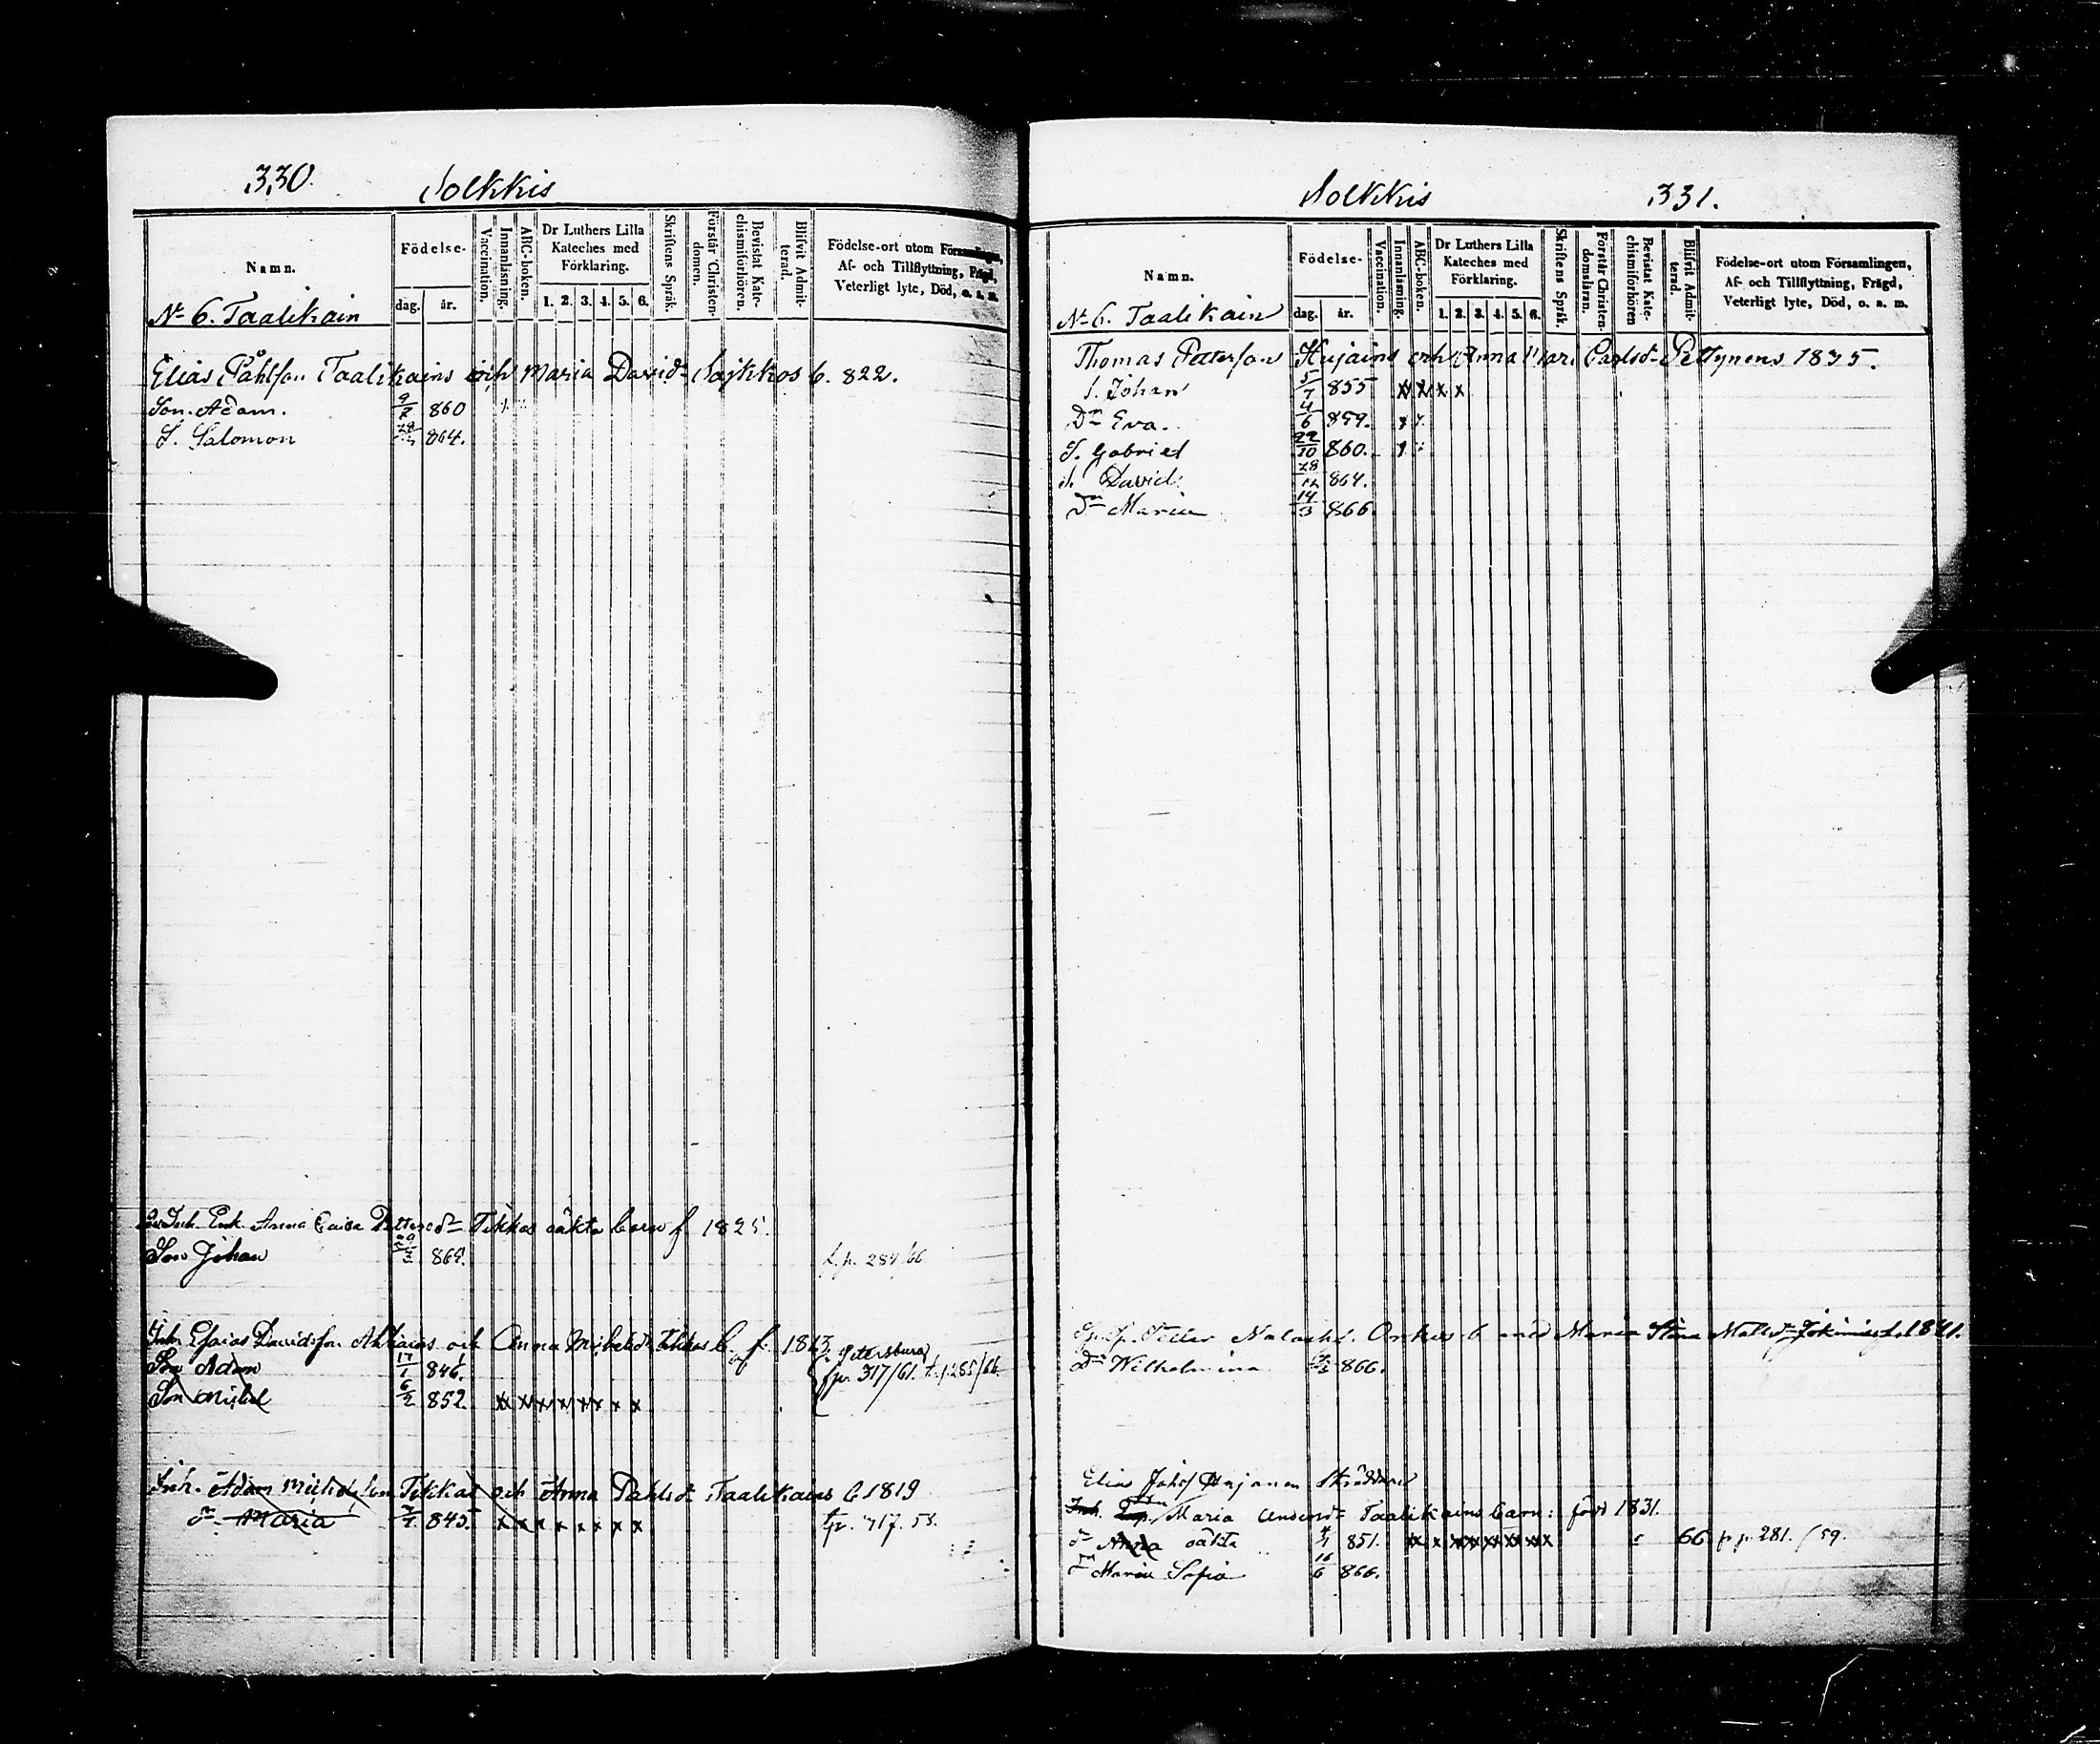 330.
Solkkis
Namn.
Födelse-
dag.
år.
Vaccination.
Innanläsning.
ABC-boken.
Dr Luthers Lilla Kateches med Förklaring.
1. 2. 3. 4. 5. 6.
Skriftens Språk.
Förstår Christen-domen.
Bevistat Kate-chismiförhören.
Blifvit Admit-terad.
Födelse-ort utom Församlingen,
Af- och Tillflyttning, Frägd,
Veterligt lyte, Död, o. s. m.
No 6. Taalikain
Elias Påhlson Taalikains och Maria Davidsd Sojkkos b. 822.
Son. Adam. 860
S. Salomon 864.
Inh. Enk. Anna Caisa Petters dr Tikkas oäkta barn f. 1825.
Son Johan 864.
f.p. 284/66
Inh. Esaias Davidsson och Anna Michelsdr Tikkas b. f. 1813
Petersburg
Son Adam 17/1 846.
fp. 317/61. t.p. 285/66.
Son Michel 6/2 852. x x x x x x x x
Inh. Adam Michelsson Tikkas och Anna Pahlsdr Taalikains b 1819
dr Maria 845. x x x x x x x x
fp. 317. 58.
Solkkis
331.
Namn.
Födelse-
dag.
år.
Vaccination.
Innanläsning.
ABC-boken.
Dr Luthers Lilla Kateches med Förklaring.
1. 2. 3. 4. 5. 6.
Skriftens Språk.
Förstår Christen-domsläran.
Bevistat Kate-chismiförhören
Blifvit Admit-terad.
Födelse-ort utom Församlingen,
Af- och Tillflyttning, Frägd,
Veterligt lyte, Död, o. s. m.
No 6. Taalikain
Thomas Petterson Kujains och Anna Mari Carlsd. Pettynens 1835.
S. Johan 5/7 855 x x x x
Dr Eva. 4/6 859.
S. Gabriel 22/10 860.
S. David. 28/12 864.
Dr Maria 14/3 866.
Petter Malachs. Onkos b med Maria Stina Mattsdr Jokinies f. 1841.
Dr Wilhelmina 866.
Elias Johs Kujanen Skräddare
Inh. Maria Andersdr Taalikains barn: född 1831.
dr Anna oäkta 4/1 851. x x x x x x x x 66 fr p. 281. / 59.
Dr Maria Sofia 16/6 866.